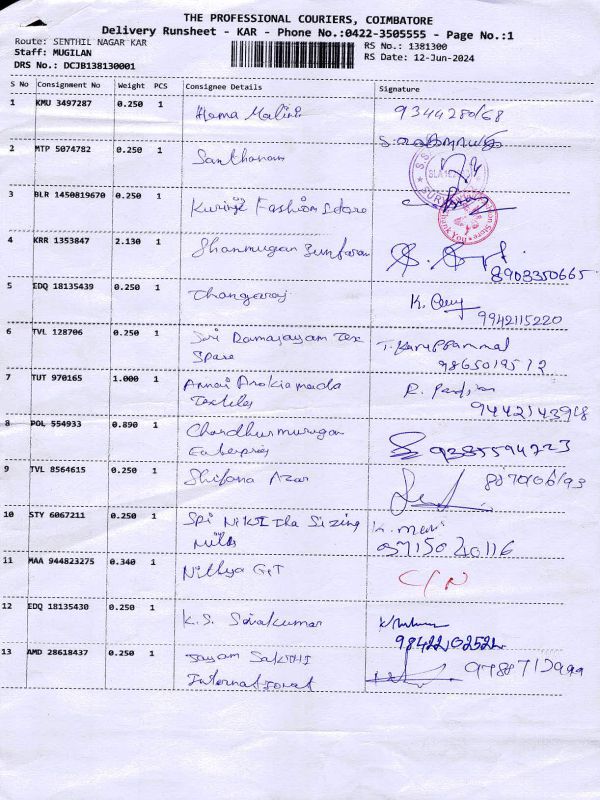 THE PROFESSIONAL COURIERS, COIMBATORE
Delivery Runsheet - KAR - Phone No.:0422-3505555 - Page No.:1
Route: SENTHIL NAGAR KAR
RS No.: 1381300
Staff: MUGILAN
RS Date: 12-Jun-2024
DRS No.: DCJB138130001
S No Consignment No Weight PCS Consignee Details Signature
1 KMU 3497287 0.250 1 Hema Malini 9344280168
2 MTP 5074782 0.250 1 Santhanam
3 BLR 1450819670 0.250 1 Kurinji Fashion Store
4 KRR 1353847 2.130 1 Shanmugan
8903350665
5 EDQ 18135439 0.250 1 Thangaraj K.
9942115220
6 TVL 128706 0.250 1 Sri Ramajayam Tex T. Karuppammal
Spare 9865019512
7 TUT 970165 1.000 1 Annai Arokiamada R.
Textiles 9442143918
8 POL 554933 0.890 1 Chandhurmurugan 9385594223
Enterprises
9 TVL 8564615 0.250 1 Shifana Azar
10 STY 6067211 0.250 1 Sri Nikitha Sizing K. Mani
Mills 9715020116
11 MAA 944823275 0.340 1 Nithya GPT C/N
12 EDQ 18135430 0.250 1 K.S. Sivakumar
9842202522
13 AMD 28618437 0.250 1 Jayam Sakthi 9788712999
International